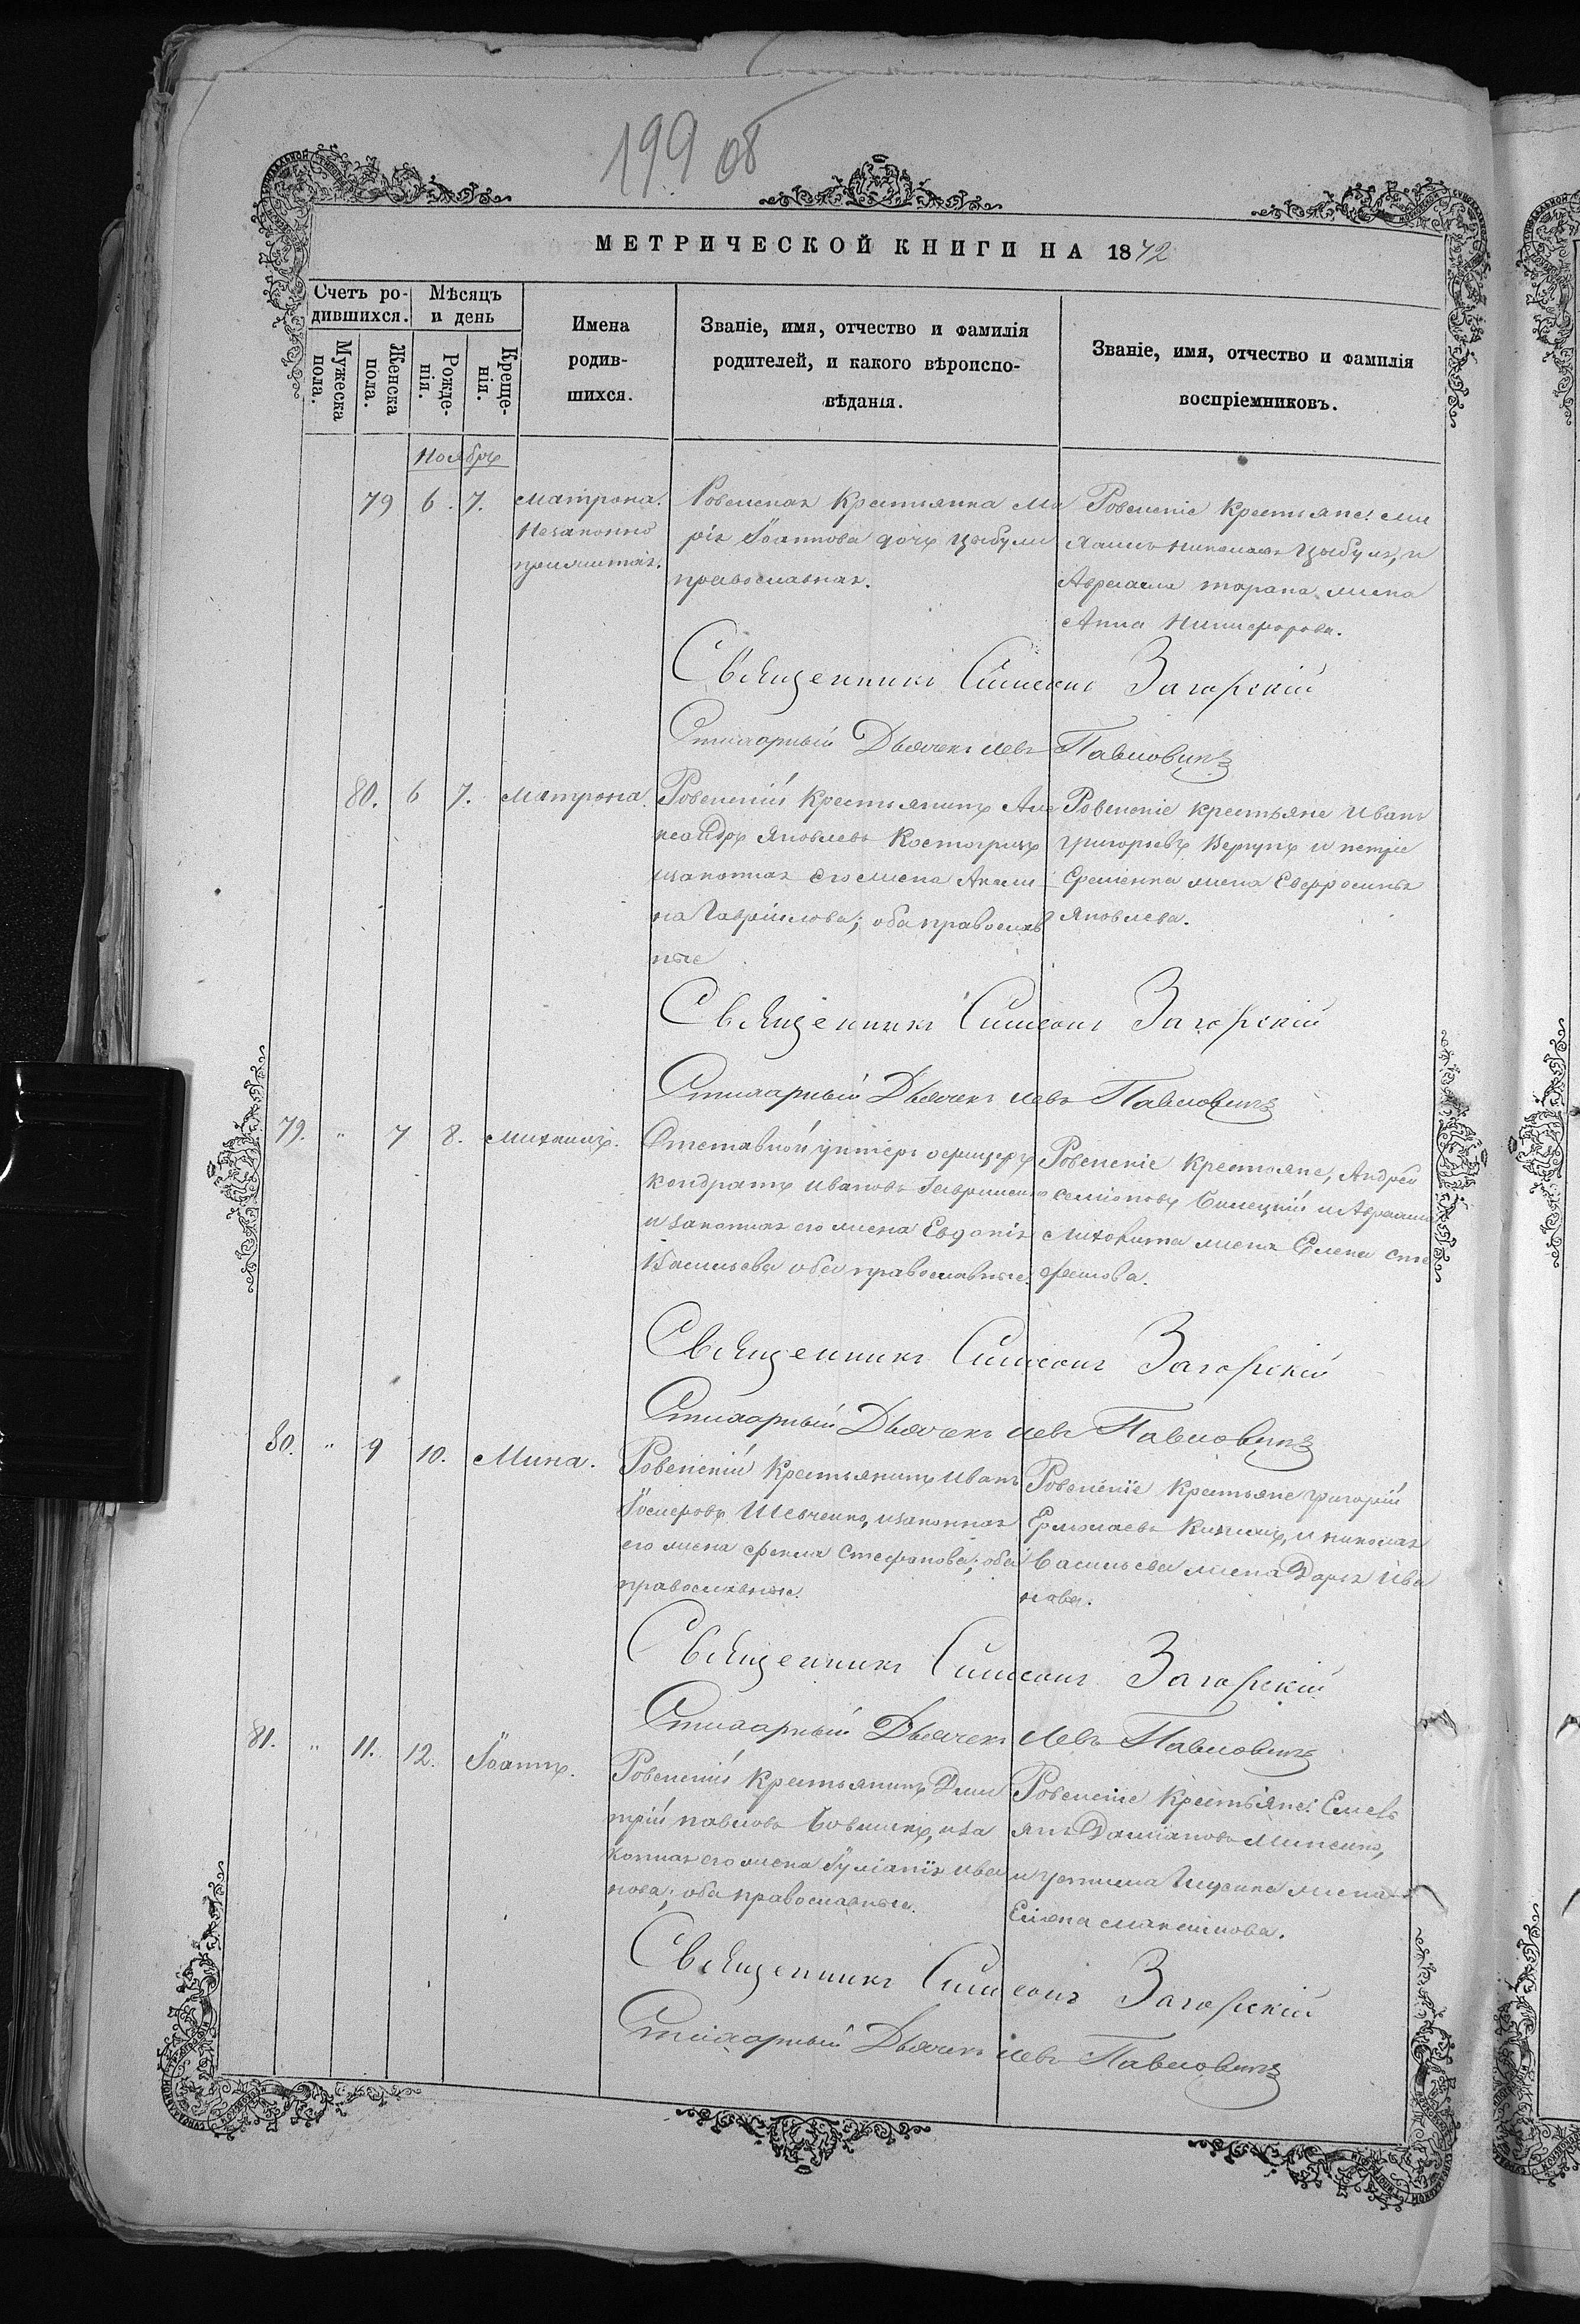 199 08
МЕТРИЧЕСКОЙ КНИГИ НА 1872
Счетъ ро-
дившихся.
Мѣсяцъ
и день
Мужеска
пола.
Женска
пола.
Рожде-
нія.
Креще-
нія.
Имена
родив-
шихся.
Званіе, имя, отчество и фамилія
родителей, и какого вѣроиспо-
вѣданія.
Званіе, имя, отчество и фамилія
воспріемниковъ.
Ноябрь
79 6. 7. Матрона.
Незаконно
прижитая.
Ровенская Крестьянка Ма
рія Іоаннова дочь Цыбули
православная.
Ровенскіе Крестьяне:
Николаевъ Цыбуля, и
Авраама тарана жена
Анна Никифорова.
Священникъ Симеонъ Загорскій
Стихарный Дьячекъ Левъ Павловичъ
80. 6 7. Матрона
Ровенскій Крестьянинъ Але
ксандръ Яковлевъ Костогрызъ
и законная его жена Акили
на Гаврилова; оба православ
ные
Ровенскіе крестьяне Иванъ
григорьевъ и
Еременка жена Евфросинья
Яковлева.
Священникъ Симеонъ Загорскій
Стихарный Дьячекъ Левъ Павловичъ
79. " 7 8. Михаилъ.
Отставной унтеръ офицеръ
кондратъ Ивановъ Гавриленко
и законная его жена Евдокія
Васильева оба православные.
Ровенскіе крестьяне, Андрей
семіоновъ и Авраама
жена Елена сте
фанова.
Священникъ Симеонъ Загорскій
Стихарный Дьячекъ Левъ Павловичъ
80. " 9 10. Мина.
Ровенскій Крестьянинъ Иванъ
Іосифовъ Шевченко, и законная
его жена Фекла Стефанова; оба
православные.
Ровенскіе Крестьяне григорій
Ермолаевъ и николая
Васильева жена Дарья Ива
нова.
Священникъ Симеонъ Загорскій
Стихарный Дьячекъ Левъ Павловичъ
81. " 11. 12. Іоаннъ.
Ровенскій Крестьянинъ Дми
трій павловъ и за
конная его жена Іуліанія Ива
нова; оба православные.
Ровенскіе Крестьяне: Емель
янъ Даміановъ
и жена
Елена Максимова.
Священникъ Симеонъ Загорскій
Стихарный Дьячекъ Левъ Павловичъ